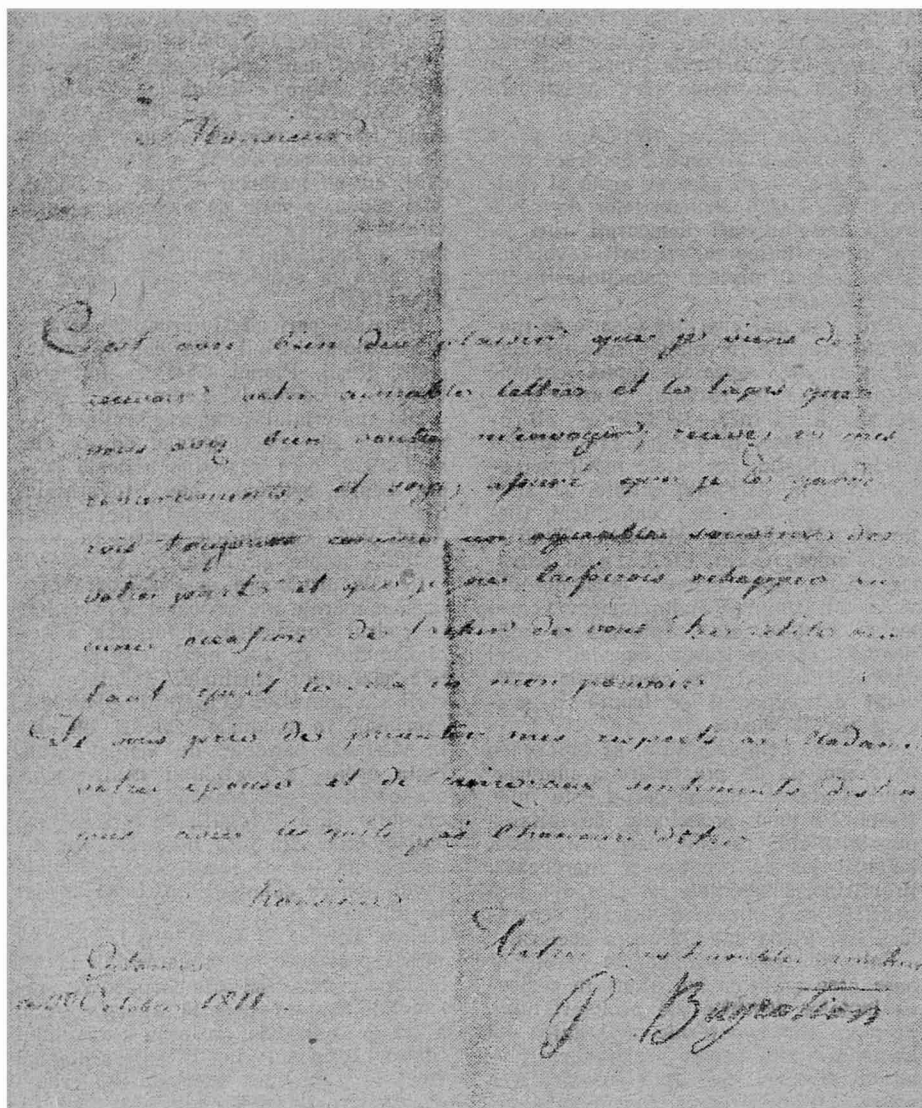 Monsieur
C'est avec bien du plaisir que je viens de
recevoir votre aimable lettre et le tapis que
vous avez bien voulu m'envoyer, recevez en mes
et soyez assuré que je le garde
rois toujours comme un agréable souvenir de
votre part et que je ne laisserois échapper au
cune occasion de vous être utile au
tant qu'il le sera en mon pouvoir
Je vous prie de présenter mes respects a Madame
votre épouse et de croire aux sentiments distin
gués avec lesquels j'ai l'honneur d'être
Monsieur
Votre très humble
Octobre 1811
P Bagration